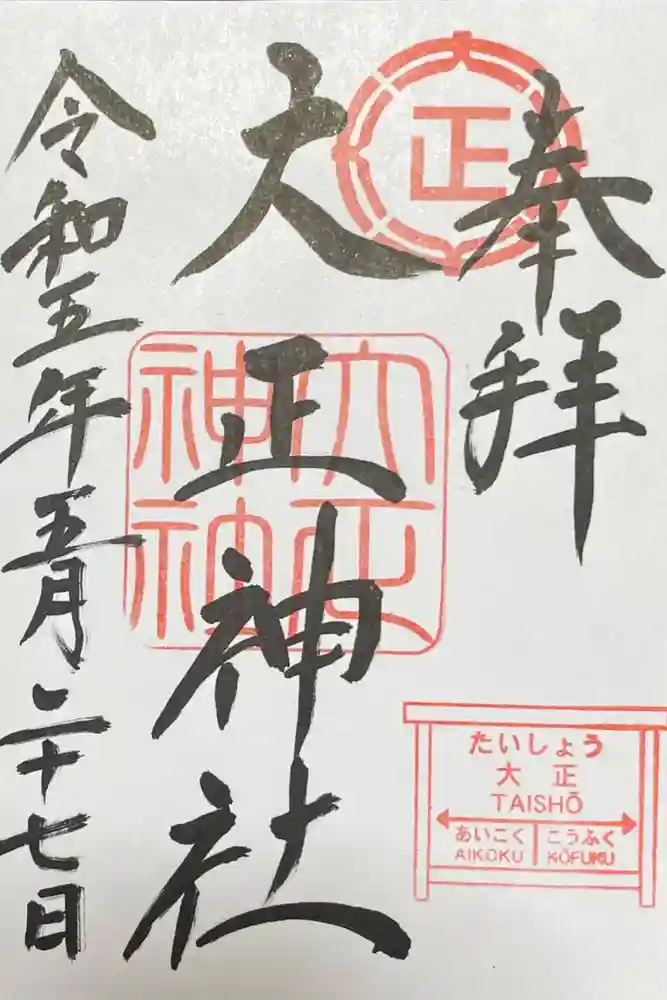 奉拝
正
大正神社
大正神社
令和五年五月二十七日
たいしょう
大正
TAISHŌ
あいこく こうふく
AIKOKU KŌFUKU